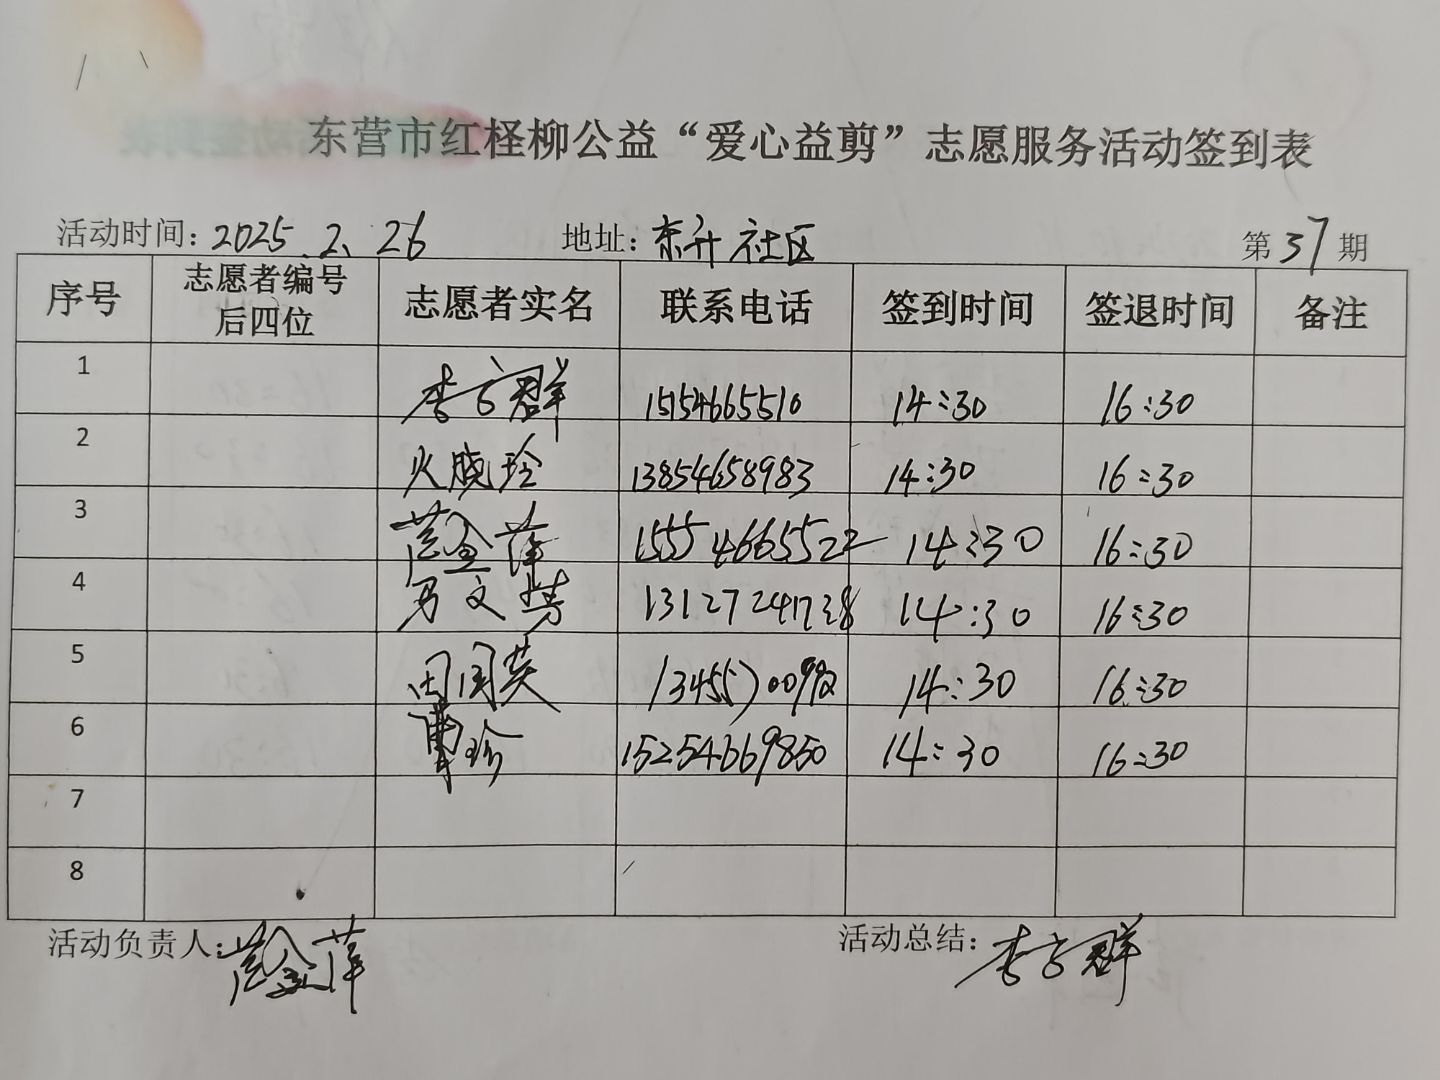 东营市红柽柳公益“爱心益剪”志愿服务活动签到表
活动时间：2025.2.26 地址：东升社区 第37期
序号 志愿者编号后四位 志愿者实名 联系电话 签到时间 签退时间 备注
1 李方群 15154665510 14:30 16:30
2 火晓玲 13854658983 14:30 16:30
3 范金萍 15554665522 14:30 16:30
4 文 13127241738 14:30 16:30
5 田国英 14:30 16:30
6 珍 15254669850 14:30 16:30
7
8
活动负责人：范金萍 活动总结：李方群